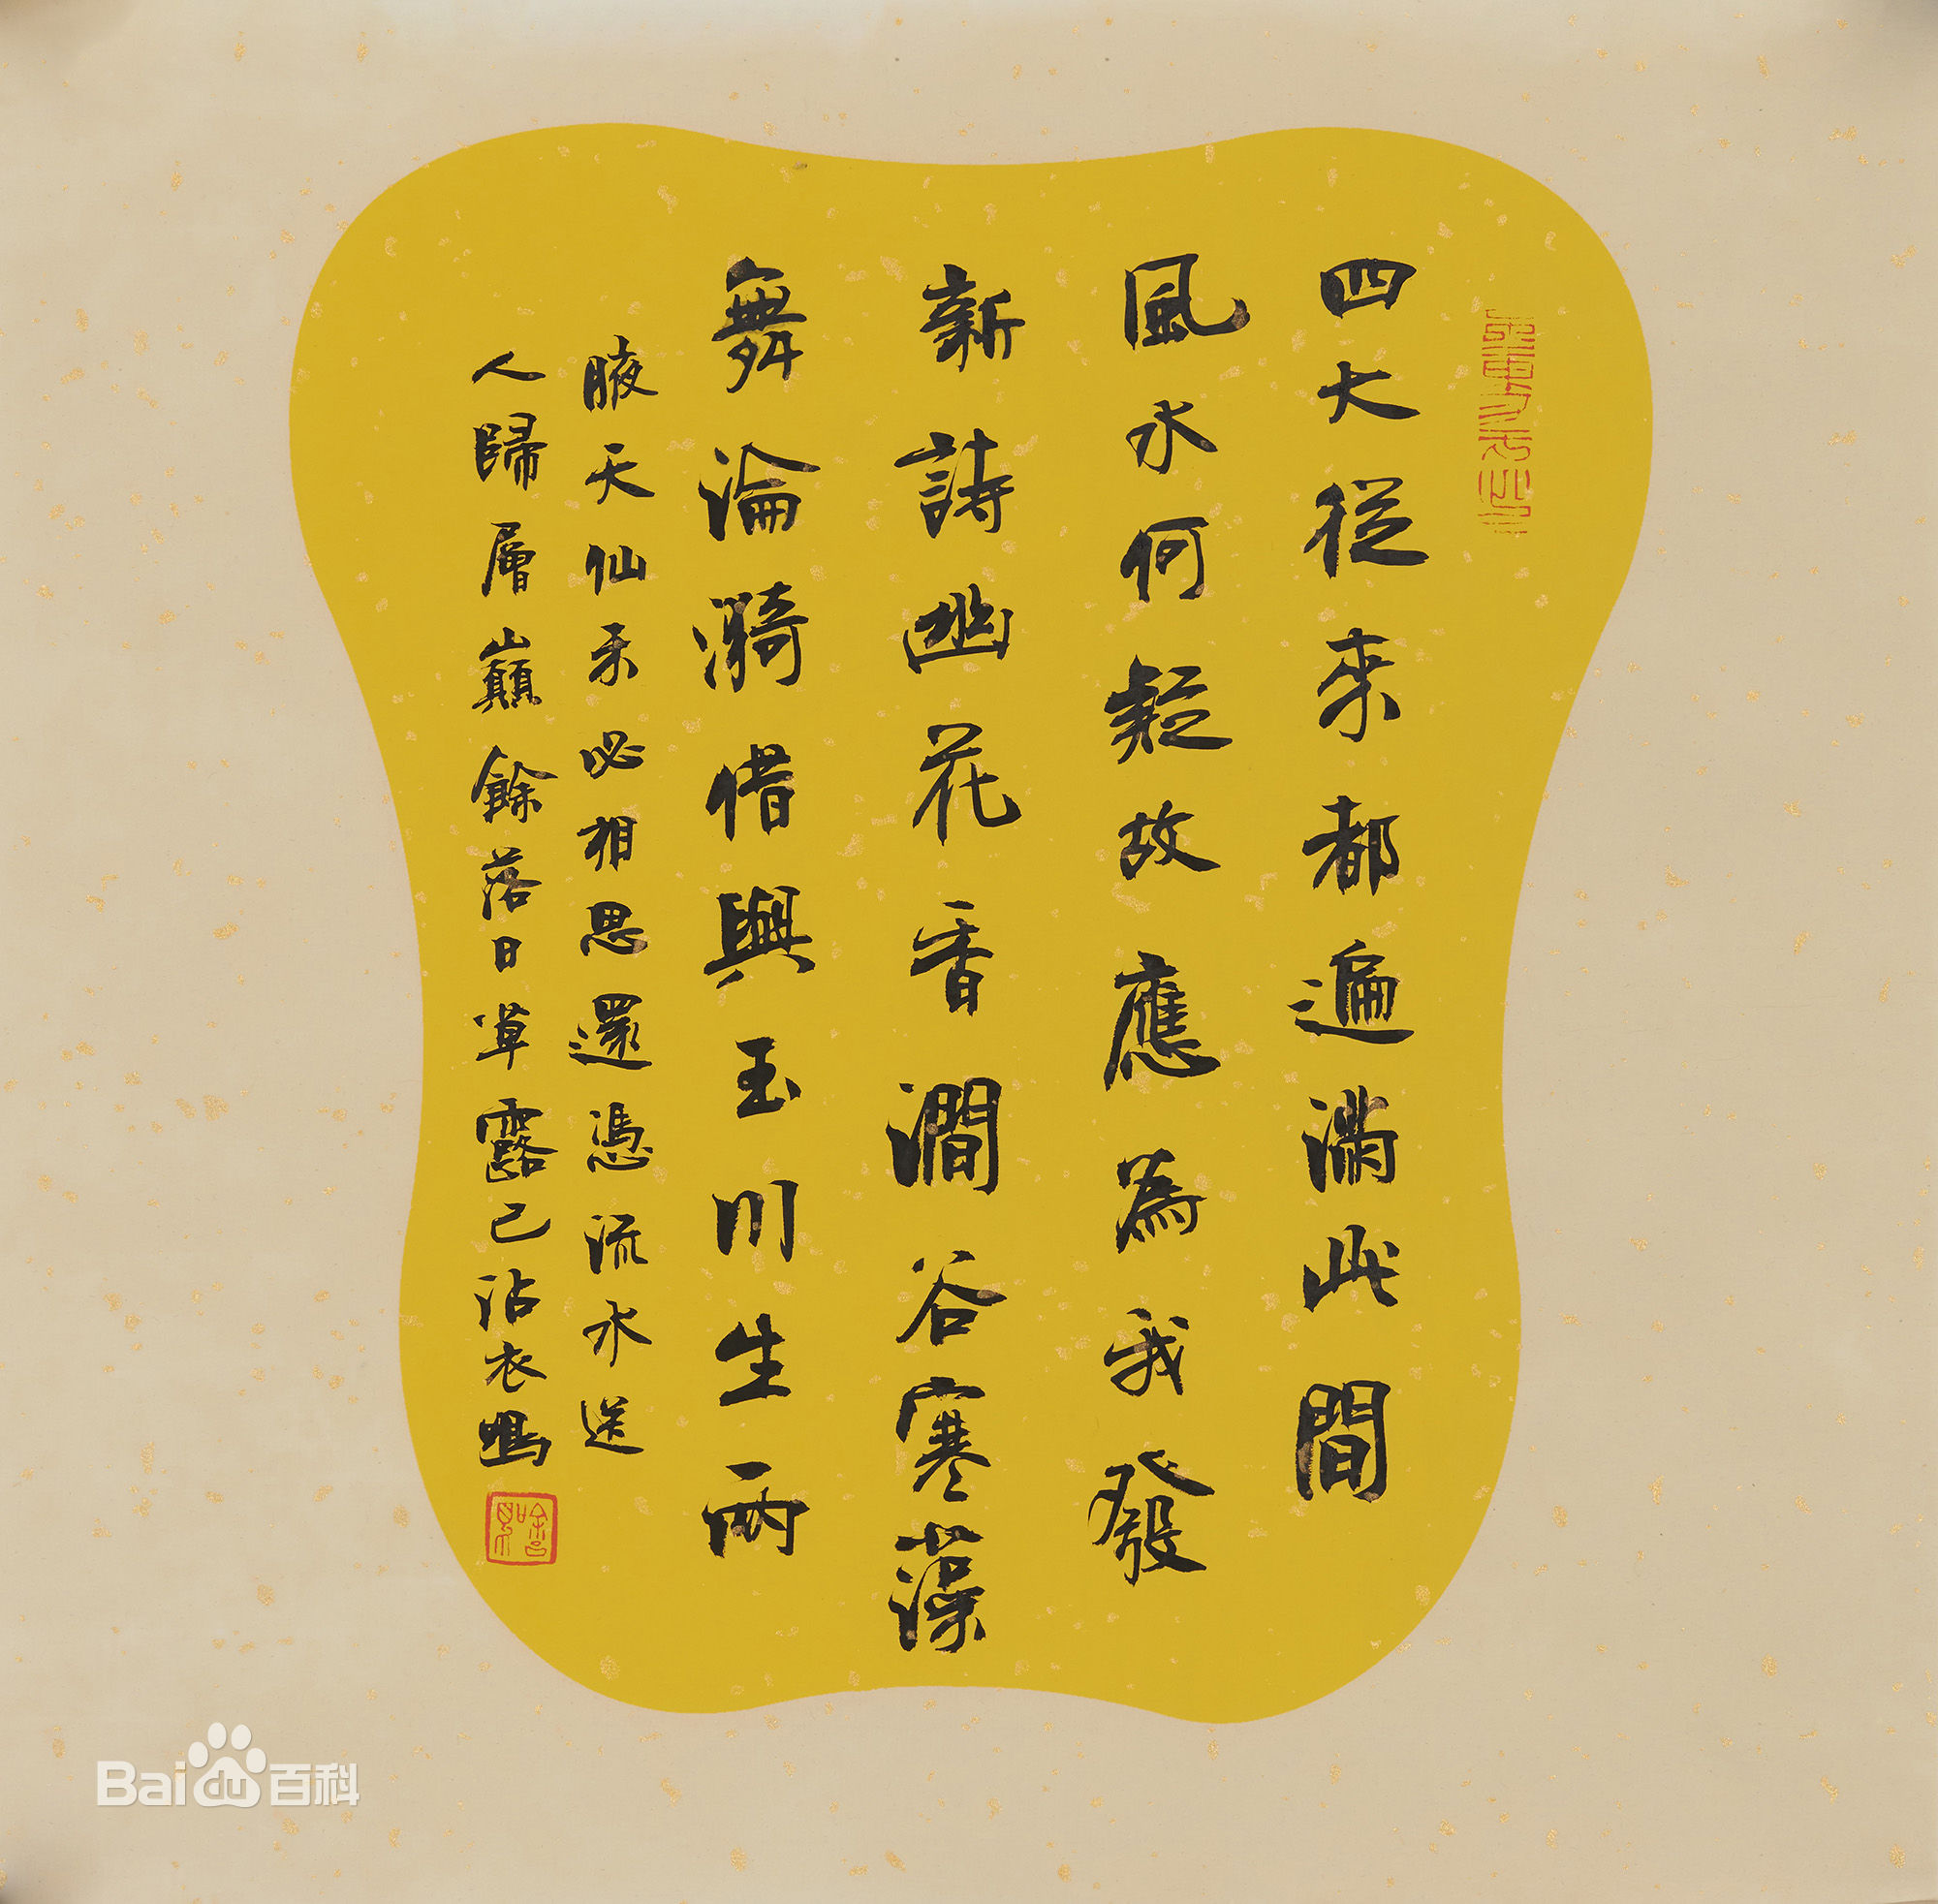 四大從来都遍滿此間
風水何疑故應為我發
新詩幽花香澗谷寒藻
舞淪漪借與玉川生兩
腋天仙未必相思還憑流水送
人歸層巔餘落日草露已沾衣鳴
Bai du 百科